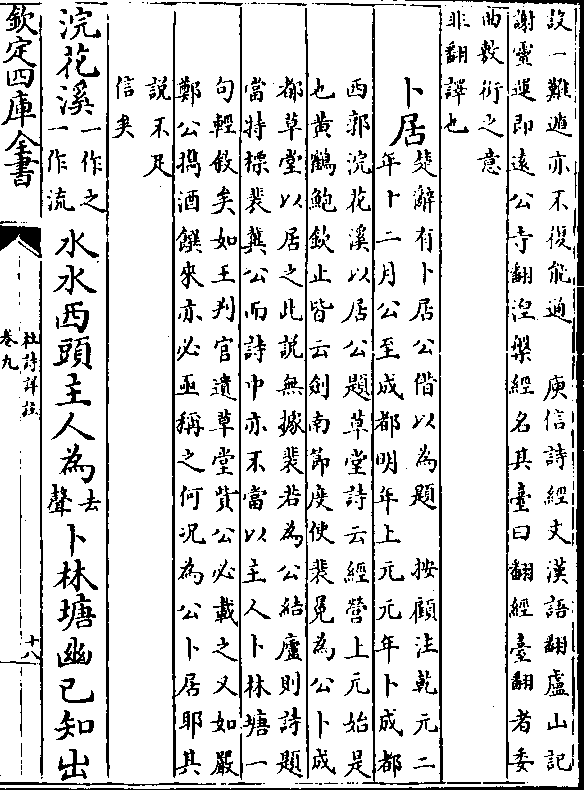 設一難遁亦不復能通　庾信詩經文漢語翻盧山記
謝靈運即遠公寺翻涅槃經名其臺曰翻經臺翻者委
曲敷衍之意
非翻譯也
卜居
楚辭有卜居公借以為題　按顧注乾元二
年十二月公至成都明年上元元年卜成都
西郭浣花溪以居公題草堂詩云經營上元始是
也黃鶴鮑欽止皆云劍南節度使裴冕為公卜成
都草堂以居之此說無據裴若為公結廬則詩題
當特標裴冀公而詩中亦不當以主人卜林塘一
句輕敘矣如王判官遺草堂貲公必載之又如嚴
鄭公攜酒饌來亦必亟稱之何況為公卜居耶其
說不足
信矣
浣花溪一作之一作流水水西頭主人為去聲卜林塘幽已知出
欽定四庫全書
杜詩詳註
卷九
十八